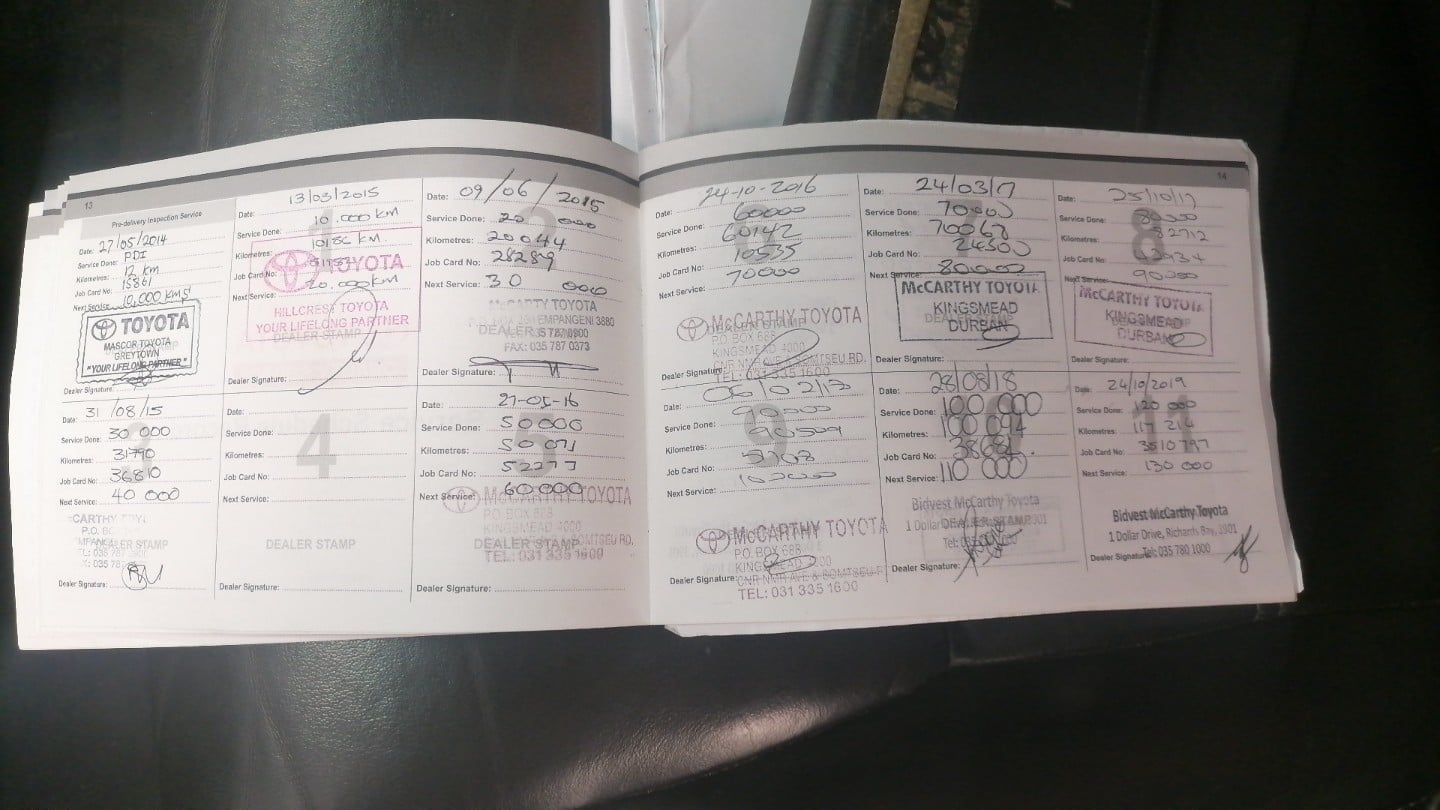 13
Pre-delivery Inspection Service
Date: 27/05/2014
Service Done: PDI
Kilometres: 12 km
Job Card No: 15861
Next Service: 10,000 kms
TOYOTA
MASCOR TOYOTA
GREYTOWN
"YOUR LIFELONG PARTNER"
Dealer Signature:
13/03/2015
Date:
10.000 km
Service Done:
10186 km
Kilometres:
Job Card No:
20.000 km
Next Service:
TOYOTA
HILLCREST TOYOTA
YOUR LIFELONG PARTNER
DEALER STAMP
Dealer Signature:
Date: 09/06/2015
Service Done: 20 000
Kilometres: 20044
Job Card No: 28289
Next Service: 30 000
McCARTHY TOYOTA
EMPANGENI 3880
DEALER STAMP
FAX: 035 787 0373
Dealer Signature:
Date: 31/08/15
Service Done: 30 000
Kilometres: 31790
Job Card No: 36810
Next Service: 40 000
DEALER STAMP
Dealer Signature:
4
Date:
Service Done:
Kilometres:
Job Card No:
Next Service:
DEALER STAMP
Dealer Signature:
Date: 27-05-16
Service Done: 50000
Kilometres: 50071
Job Card No: 52277
Next Service: 60.000
McCARTHY TOYOTA
P.O. BOX 688
KINGSMEAD 4000
DEALER STAMP
TEL: 031 335 1600
Dealer Signature:
14
24-10-2016
Date:
60000
Service Done:
60142
Kilometres:
10535
Job Card No:
70000
Next Service:
McCARTHY TOYOTA
DEALER STAMP
P.O. BOX 688
KINGSMEAD 4000
TEL: 031 335 1600
Dealer Signature:
Date: 24/03/17
Service Done: 70000
Kilometres: 70067
Job Card No: 24500
Next Service: 80000
McCARTHY TOYOTA
KINGSMEAD
DURBAN
Dealer Signature:
8
Date: 25/10/17
Service Done: 80000
Kilometres: 82712
Job Card No:
Next Service: 90000
McCARTHY TOYOTA
KINGSMEAD
DURBAN
Dealer Signature:
Date:
Service Done: 90000
Kilometres: 90509
Job Card No:
Next Service: 100000
McCARTHY TOYOTA
P.O. BOX 688
KINGSMEAD
CNR NMR AVE & SOMTSEU
TEL: 031 335 1600
Dealer Signature:
Date: 28/08/18
Service Done: 100 000
Kilometres: 100 094
Job Card No:
Next Service: 110 000
Bidvest McCarthy Toyota
DEALER STAMP
Dealer Signature:
11
Date: 24/10/2019
Service Done: 120 000
Kilometres: 117 214
Job Card No: 3510797
Next Service: 130 000
Bidvest McCarthy Toyota
1 Dollar Drive, Richards Bay, 3901
Tel: 035 780 1000
Dealer Signature: